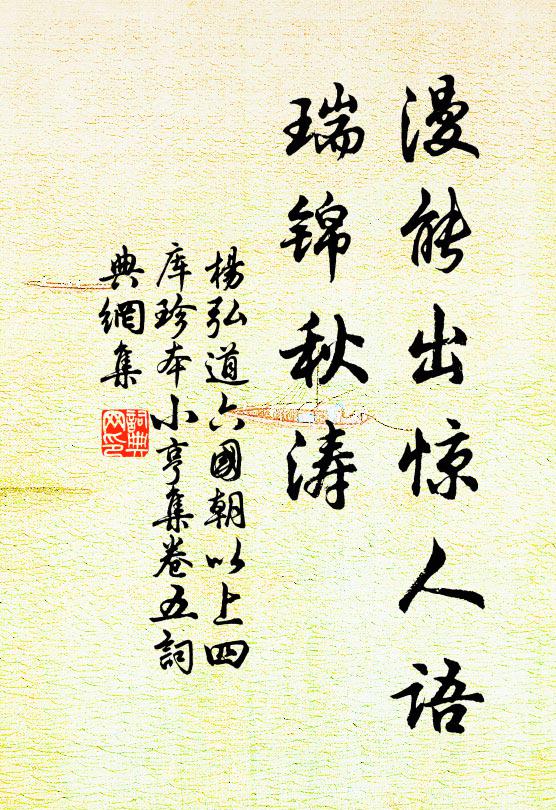 漫能出惊人语
瑞锦秋涛
楊弘道六國朝以上四
库珍本小亨集卷五詞
典網集
詞典
网印